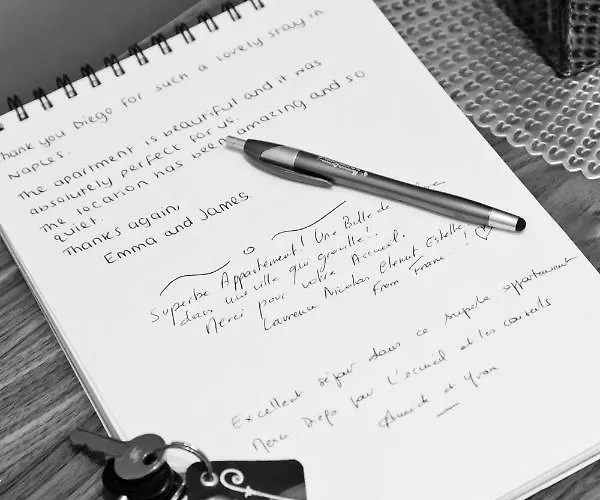 Thank you Diego for such a lovely stay in
Naples.
The apartment is beautiful and it was
absolutely perfect for us.
The location has been amazing and so
quiet.
Thanks again,
Emma and James
Superbe Appartement! Une Bulle de
dans une ville qui grouille!.
Merci pour votre Accueil.
Laurence Nicolas Clément Estelle,
From France...! ♡
Excellent séjour dans ce superbe appartement
Merci Diego pour l'accueil et les conseils
Annick et Yvan